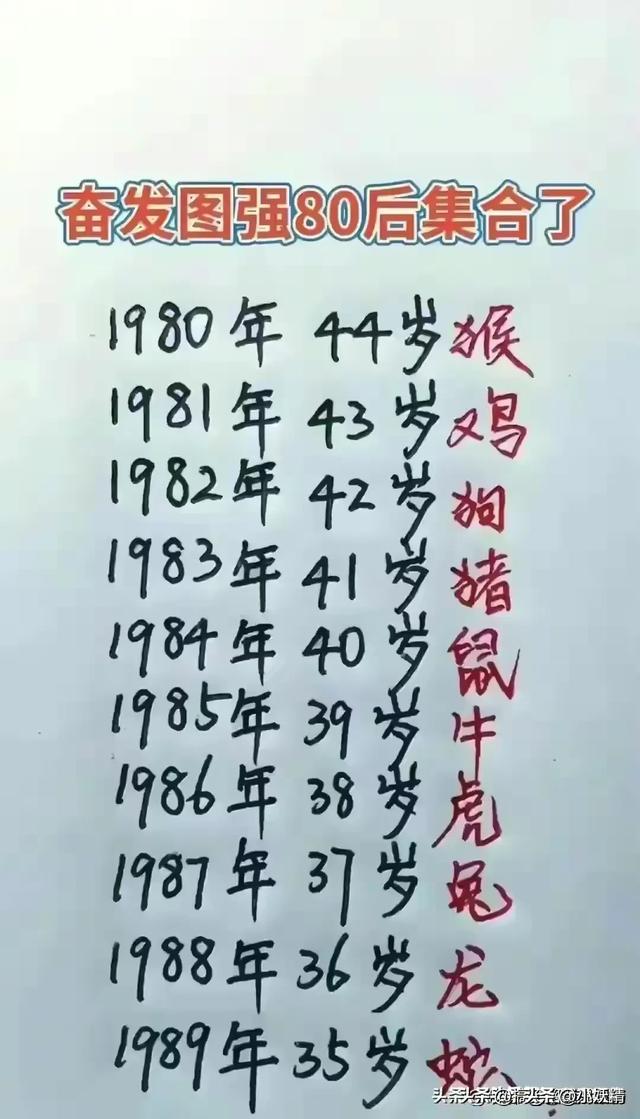 奋发图强80后集合了
1980年 44岁猴
1981年 43岁鸡
1982年 42岁狗
1983年 41岁猪
1984年 40岁鼠
1985年 39岁牛
1986年 38岁虎
1987年 37岁兔
1988年 36岁龙
1989年 35岁蛇